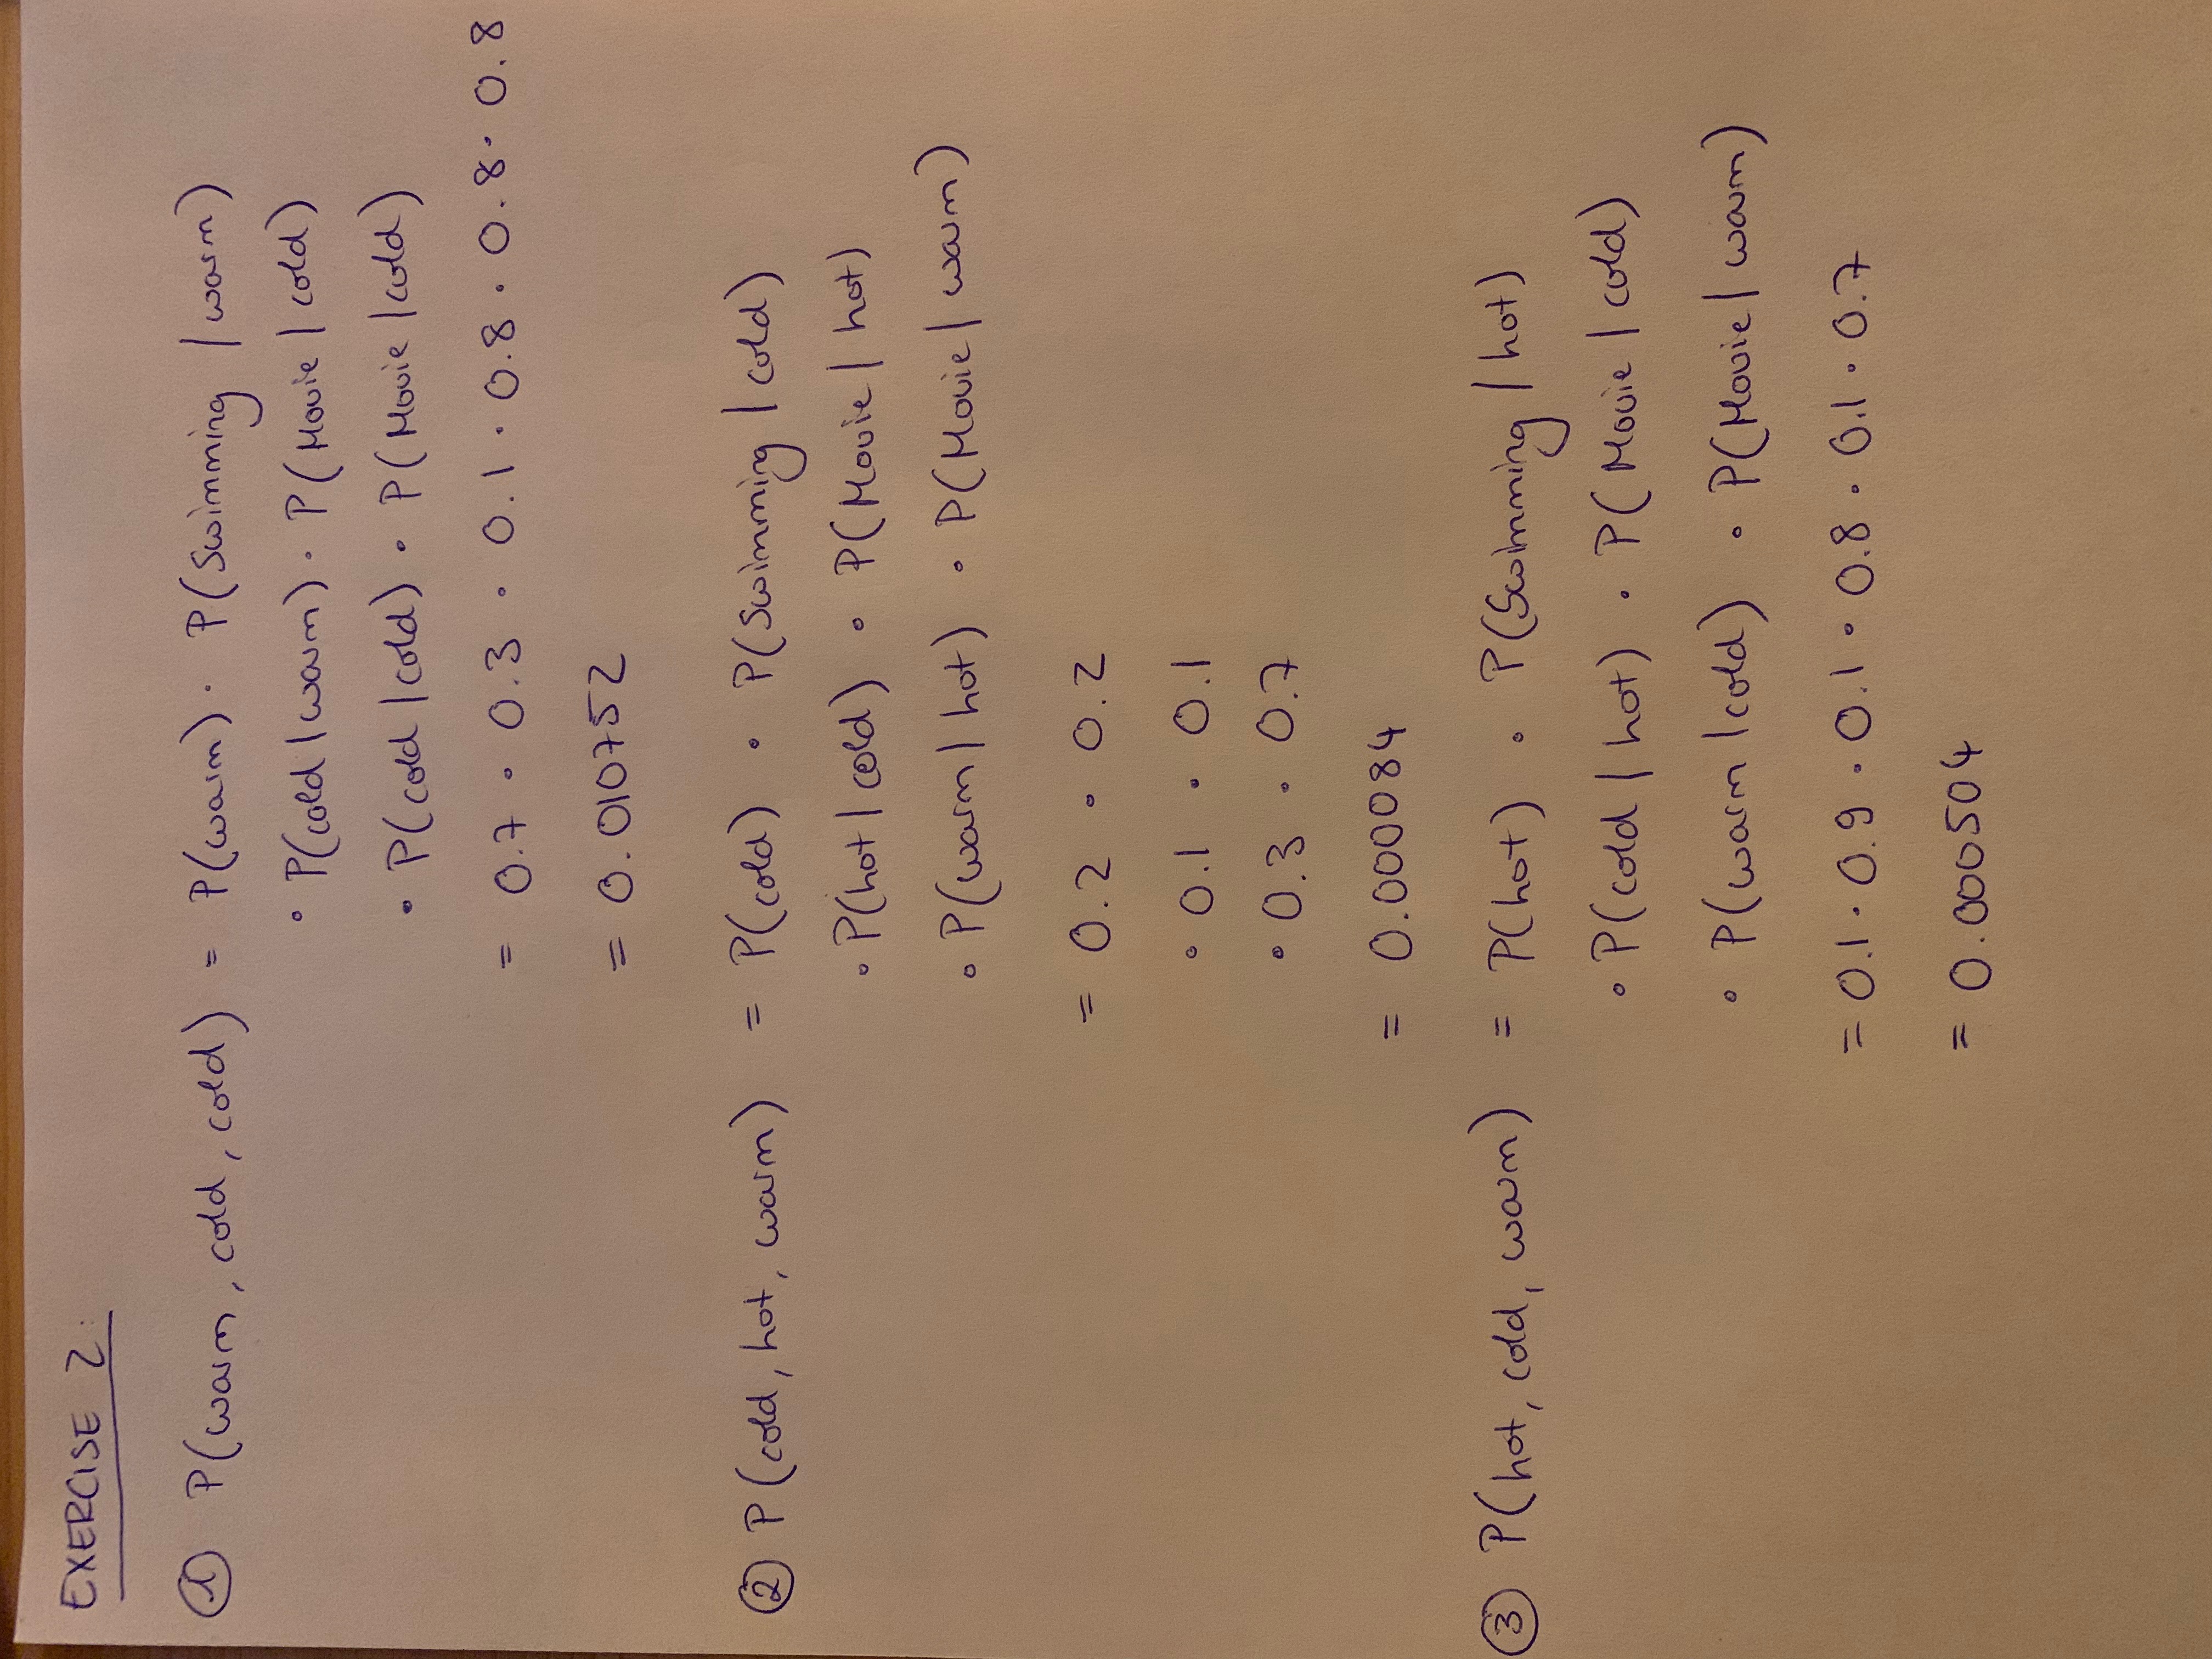 EXERCISE 2:
① P(warm, cold, cold) = P(warm) · P(Swimming | warm)
· P(cold | warm) · P(Movie | cold)
· P(cold | cold) · P(Movie | cold)
= 0.7 · 0.3 · 0.1 · 0.8 · 0.8 · 0.8
= 0.010752
② P(cold, hot, warm) = P(cold) · P(Swimming | cold)
· P(hot | cold) · P(Movie | hot)
· P(warm | hot) · P(Movie | warm)
= 0.2 · 0.2
· 0.1 · 0.1
· 0.3 · 0.7
= 0.000084
③ P(hot, cold, warm) = P(hot) · P(Swimming | hot)
· P(cold | hot) · P(Movie | cold)
· P(warm | cold) · P(Movie | warm)
= 0.1 · 0.9 · 0.1 · 0.8 · 0.1 · 0.7
= 0.000504